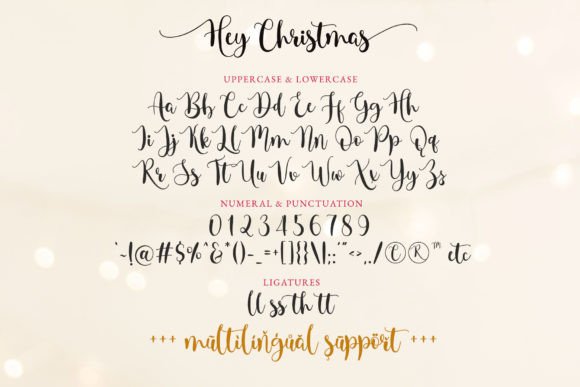 Hey Christmas
UPPERCASE & LOWERCASE
Aa Bb Cc Dd Ee Ff Gg Hh
Ii Jj Kk Ll Mm Nn Oo Pp Qq
Rr Ss Tt Uu Vv Ww Xx Yy Zz
NUMERAL & PUNCTUATION
0 1 2 3 4 5 6 7 8 9
`~!@#$%^&*()-_=+[]{}\|;:'"<>,./©®™ etc
LIGATURES
ll ss th tt
+++ mūltiliňģúål šúppöřt +++